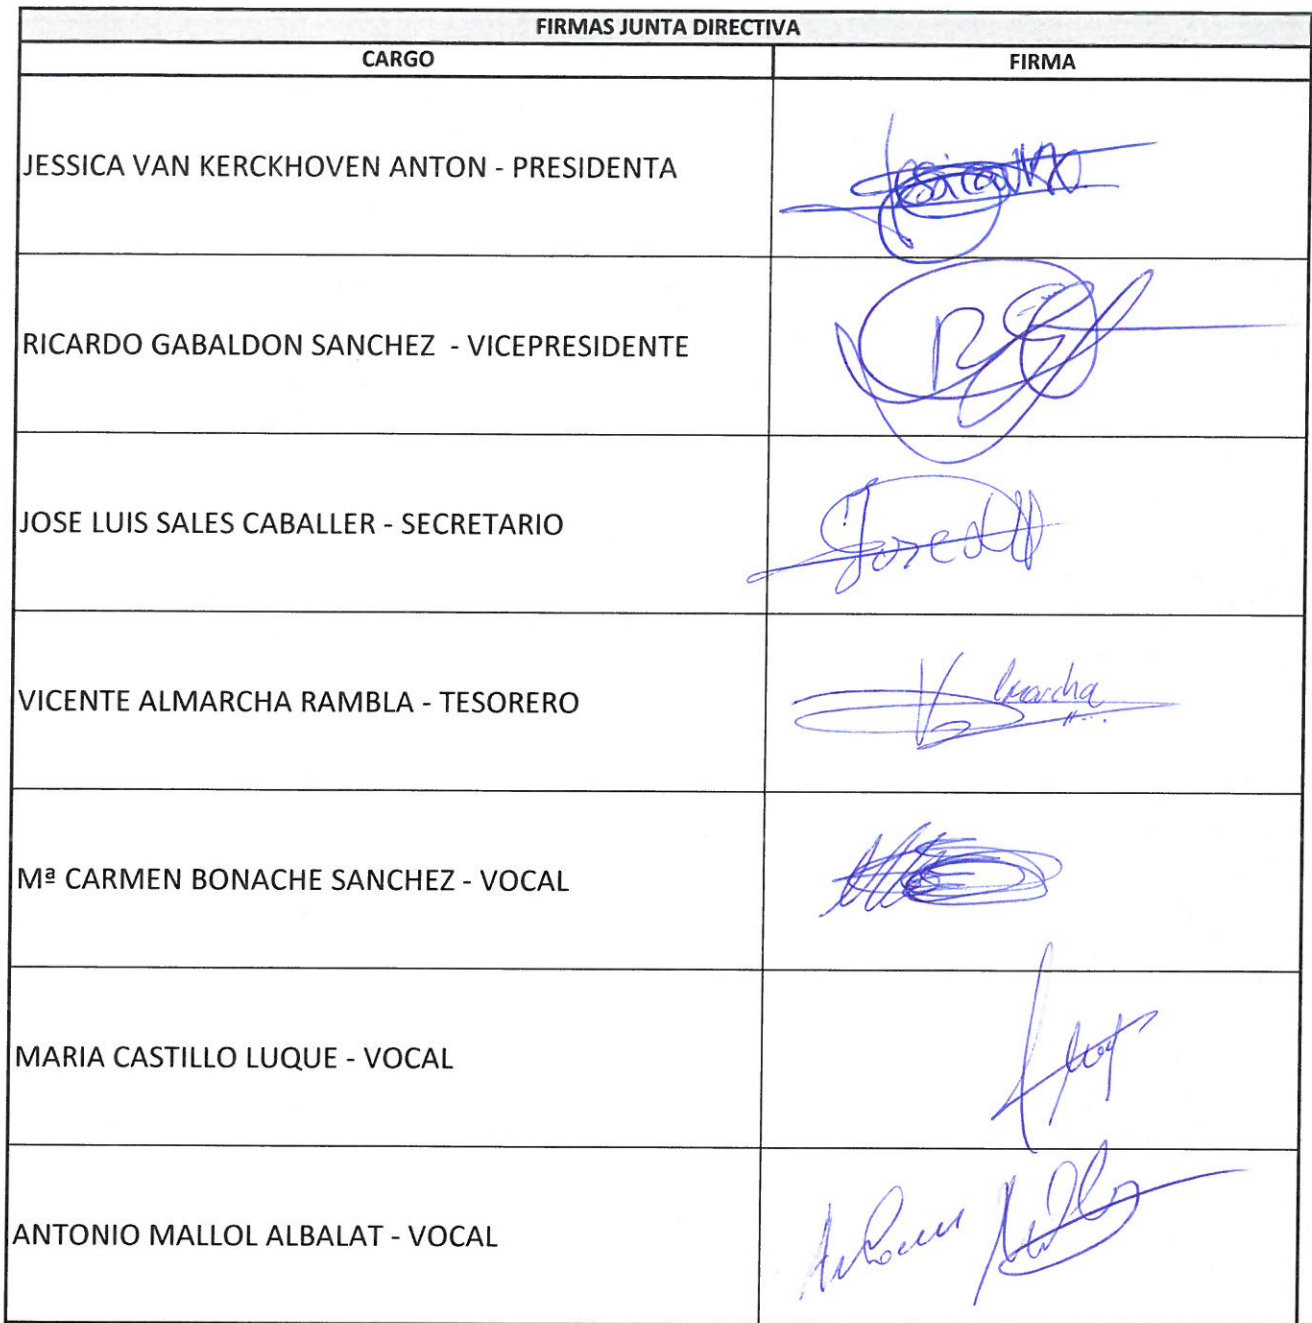 FIRMAS JUNTA DIRECTIVA
CARGO FIRMA
JESSICA VAN KERCKHOVEN ANTON - PRESIDENTA
RICARDO GABALDON SANCHEZ - VICEPRESIDENTE
JOSE LUIS SALES CABALLER - SECRETARIO
VICENTE ALMARCHA RAMBLA - TESORERO
Mª CARMEN BONACHE SANCHEZ - VOCAL
MARIA CASTILLO LUQUE - VOCAL
ANTONIO MALLOL ALBALAT - VOCAL